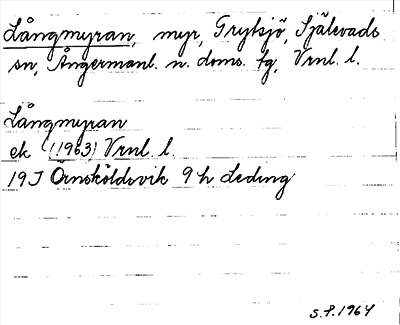 Långmyran, myr, Trytsjö, Själevads
sn, Ångermanl. n. doms. fg, Vrnl. l.
Långmyran
ek (1963) Vrnl. l.
19J Örnsköldsvik 9 h Leding
S.P. 1964